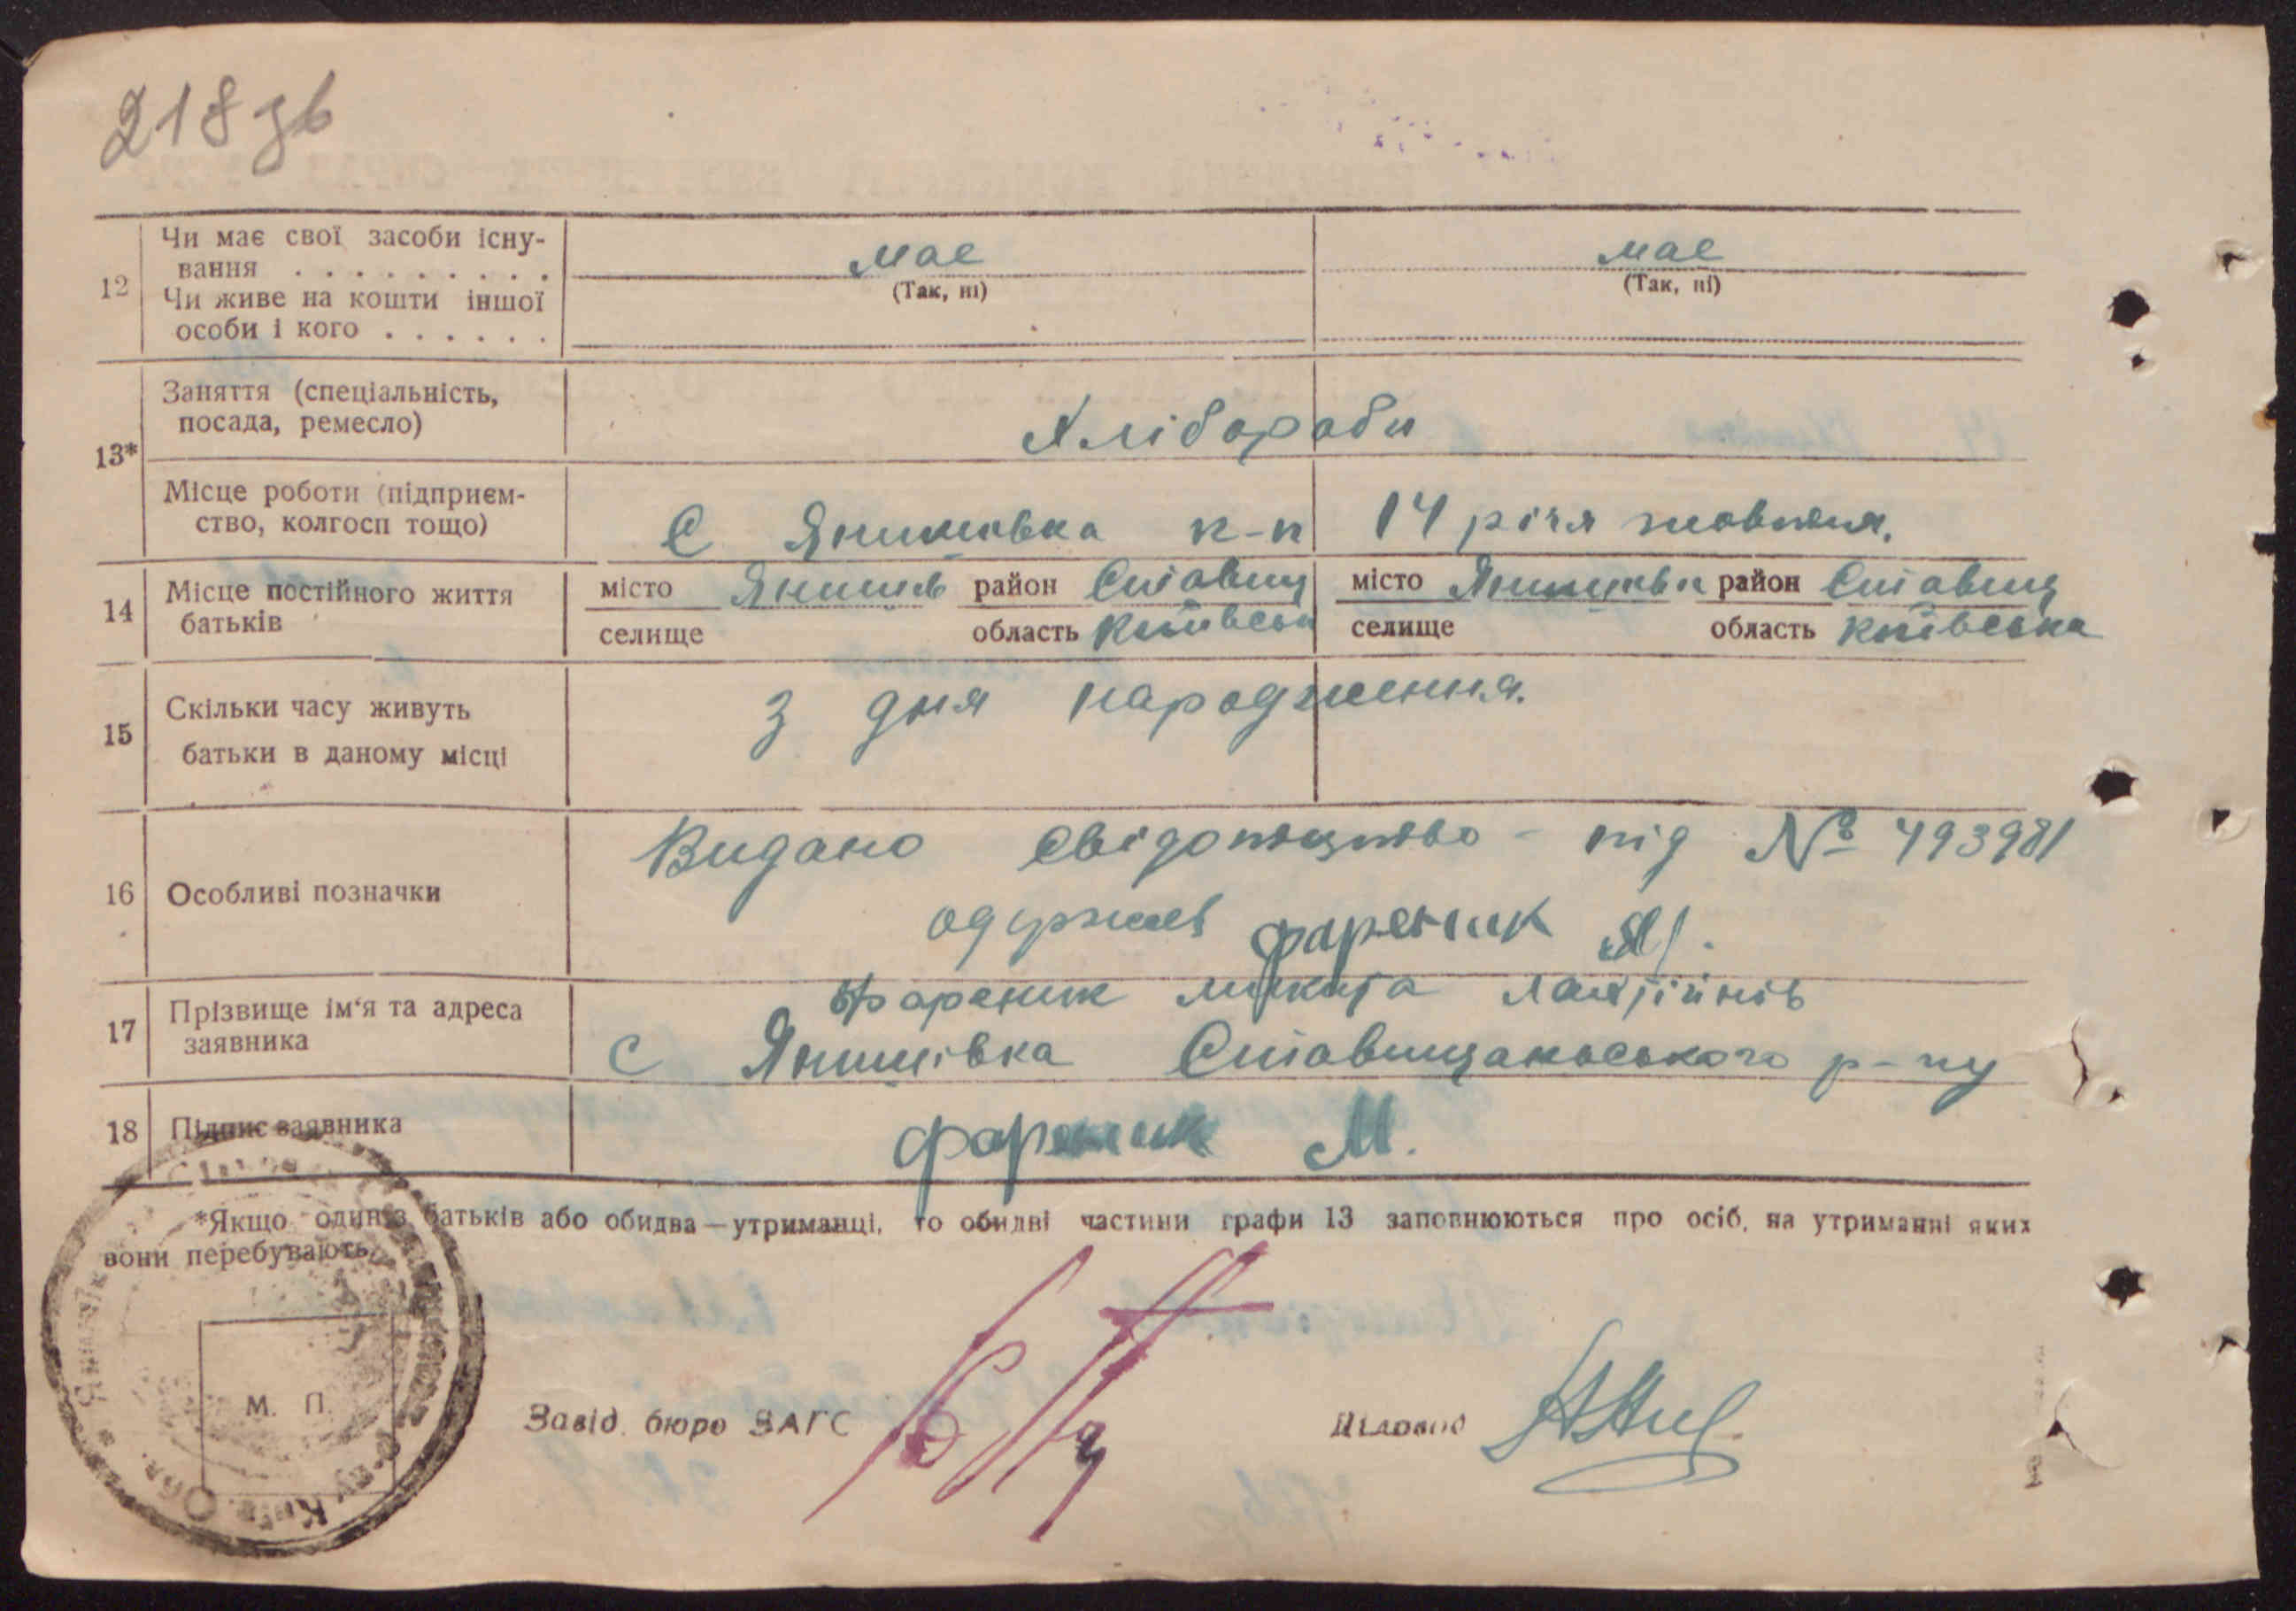 218 зв
12 Чи має свої засоби існу-
вання . . . . . . . . . має має
(Так, ні) (Так, ні)
Чи живе на кошти іншої
особи і кого . . . . . .
13* Заняття (спеціальність,
посада, ремесло) Хлібороби
Місце роботи (підприєм-
ство, колгосп тощо) С Янишівка к-п 14 річя жовтня.
14 Місце постійного життя
батьків
місто Янишів район Ставищ місто Янишівка район Ставищ
селище область Київськ селище область Київська
15 Скільки часу живуть
батьки в даному місці
З дня народження.
16 Особливі позначки
Видано свідотцтво - під № 493981
одержав фареник
17 Прізвище ім'я та адреса
заявника
Фареник микита
С Янишівка Ставищанського р-ну
18 Підпис заявника фареник М.
*Якщо один із батьків або обидва—утриманці, то обидві частини графи 13 заповнюються про осіб, на утриманні яких
вони перебувають.
М. П.
Завід. бюро ЗАГС Діловод